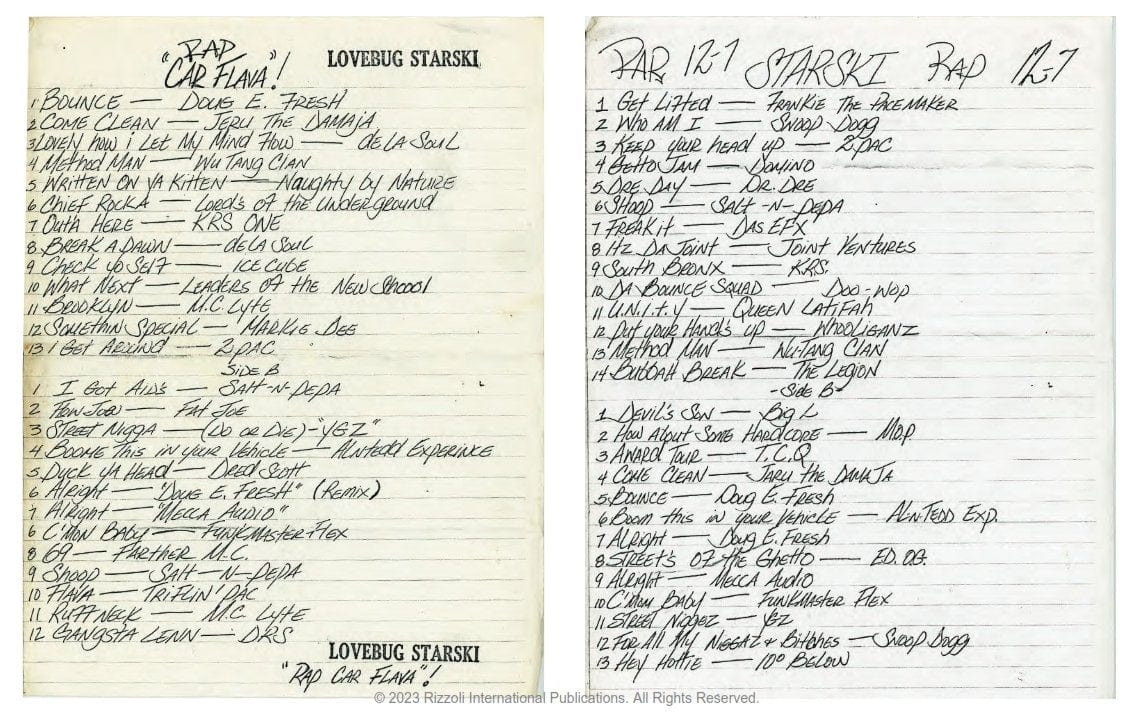 "RAP
CAR FLAVA"!
LOVEBUG STARSKI
1 BOUNCE — DOUG E. FRESH
2 COME CLEAN — JERU THE DAMAJA
3 LOVELY HOW i LET MY MIND FLOW — de LA SOUL
4 METHOD MAN — WU TANG CLAN
5 WRITTEN ON YA KITTEN — NAUGHTY by NATURE
6 CHIEF ROCKA — LORD'S OF THE UNDERGROUND
7 OUTA HERE — KRS ONE
8 BREAK A DAWN — de LA SOUL
9 CHECK YO SELF — ICE CUBE
10 WHAT NEXT — LEADERS OF THE NEW SHCOOL
11 BROOKLYN — M.C. LYTE
12 SOMETHIN SPECIAL — MARKIE DEE
13 I GET AROUND — 2 PAC
SIDE B
1 I GOT AIDS — SALT-N-PEPA
2 FLOW JOE — FAT JOE
3 STREET NIGGA — (DO OR DIE) - "YGZ"
4 BOOME THIS IN YOUR VEHICLE — ALNTEDD EXPERINCE
5 DUCK YA HEAD — DRED SCOTT
6 ALRIGHT — "DOUG E. FRESH" (REMIX)
7 ALRIGHT — "MECCA AUDIO"
6 C'MON BABY — FUNKMASTER FLEX
8 69 — FATHER M.C.
9 SHOOP — SALT-N-PEPA
10 FLAVA — TRIFLIN' PAC
11 RUFFNECK — M.C. LYTE
12 GANGSTA LENN — DRS
LOVEBUG STARSKI
"RAP CAR FLAVA"!
RAP 12-7 STARSKI RAP 12-7
1 GET LIFTED — FRANKIE THE PACEMAKER
2 WHO AM I — SNOOP DOGG
3 KEEP YOUR HEAD UP — 2 PAC
4 GETTO JAM — DOMINO
5 DRE DAY — DR. DRE
6 SHOOP — SALT-N-PEPA
7 FREAK it — DAS EFX
8 HZ DA JOINT — JOINT VENTURES
9 SOUTH BRONX — KRS.
10 DA BOUNCE SQUAD — DOO-WOP
11 U.N.I.T.Y — QUEEN LATIFAH
12 PUT YOUR HAND'S UP — WHOOLIGANZ
13 METHOD MAN — WU-TANG CLAN
14 BUDDAH BREAK — THE LEGION
-SIDE B-
1 DEVIL'S SON — BIG L
2 HOW ABOUT SOME HARDCORE — M.O.P.
3 AWARD TOUR — T.C.Q
4 COME CLEAN — JARU THE DAMAJA
5 BOUNCE — DOUG E. FRESH
6 BOOM THIS IN YOUR VEHICLE — AL-N-TEDD EXP.
7 ALRIGHT — DOUG E. FRESH
8 STREET'S OF THE GHETTO — ED. O.G.
9 ALRIGHT — MECCA AUDIO
10 C'MON BABY — FUNKMASTER FLEX
11 STREET NIGGEZ — YGZ
12 FOR ALL MY NIGGAZ & BITCHES — SNOOP DOGG
13 HEY HOTTIE — 10° BELOW
© 2023 Rizzoli International Publications. All Rights Reserved.